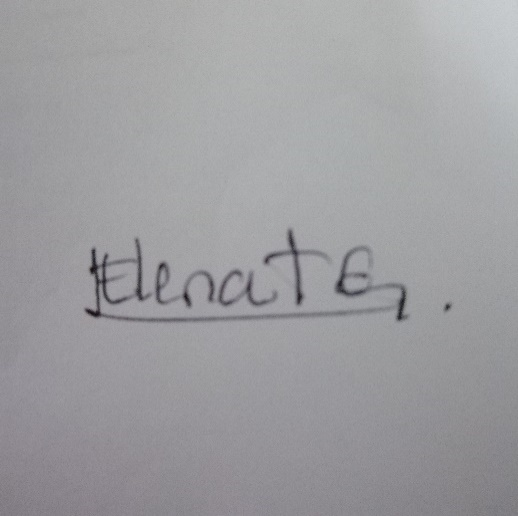 Elenat E.